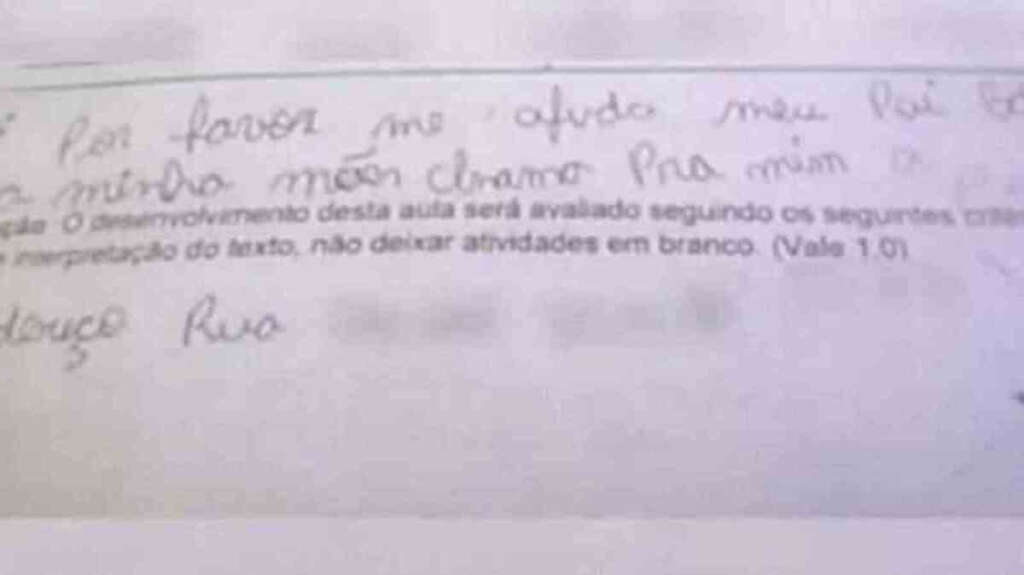 Por favor me ajuda meu Pai
a minha mãen chama Pra mim a
O desenvolvimento desta aula será avaliado seguindo os seguintes
interpretação do texto, não deixar atividades em branco. (Vale 1.0)
Rua